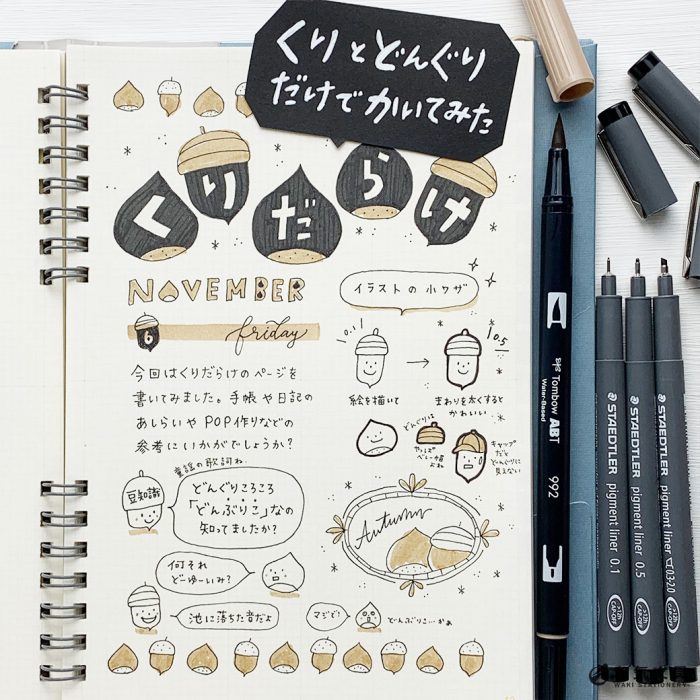 くりとどんぐり
だけでかいてみた
くりだらけ
NOVEMBER
6 friday
今回はくりだらけのページを
書いてみました。手帳や日記の
あしらいやPOP作りなどの
参考にいかがでしょうか？
童謡の歌詞ね
豆知識
どんぐりころころ
「どんぶりこ」なの
知ってましたか？
何それ
どーゆーいみ？
池に落ちた音だよ
マジで！
どんぶりこ…かぁ
イラストの小ワザ
0.1
0.5
絵を描いて
まわりを太くすると
かわいい
どんぐりは
やっぱ
ベレー帽
よね
キャップ
だと
どんぐりに
見えない
Autumn
Tombow ABT
Water-Based
992
STAEDTLER
pigment liner 0.1
CAP-OFF
STAEDTLER
pigment liner 0.5
CAP-OFF
STAEDTLER
pigment liner 0.3-2.0
CAP-OFF
WAKI STATIONERY